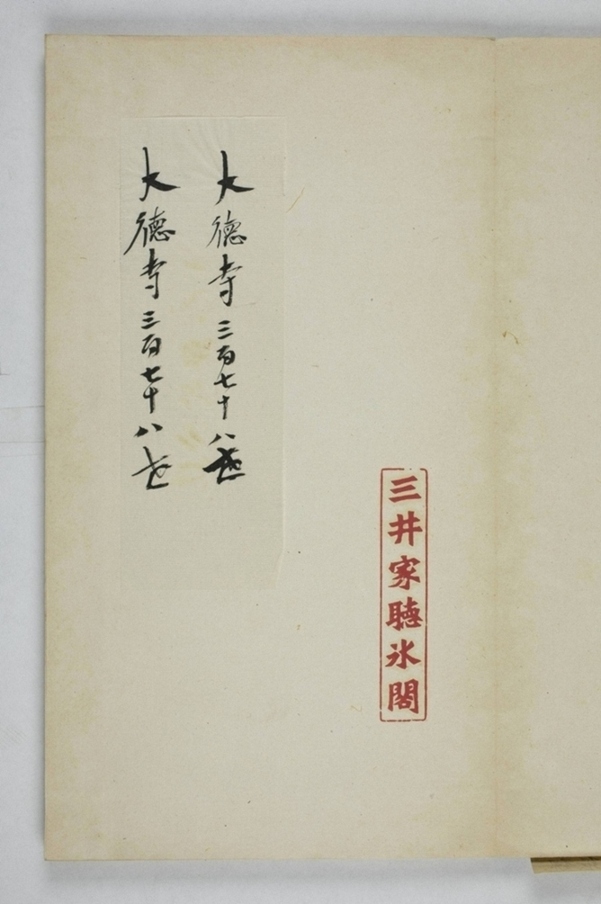 三井家聴氷閣
大徳寺三百七十八世
大徳寺三百七十八世